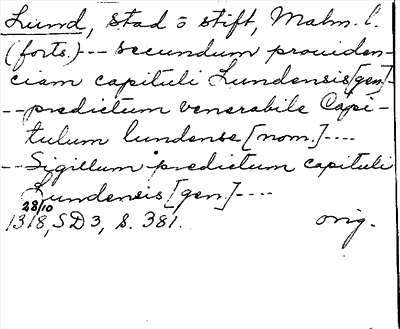 Lund, stad o stift, Malm. l.
(forts.)--- secundum prouiden-
ciam capituli Lundensis [gen]-
--predictum venerabile Capi-
tulum lundense [nom.]----
--Sigillum predictum capituli
Lundensis [gen.]----
28/10
1318, SD 3, s. 381. orig.